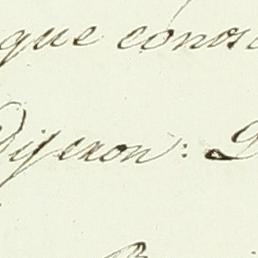 que conos
Dijeron: D